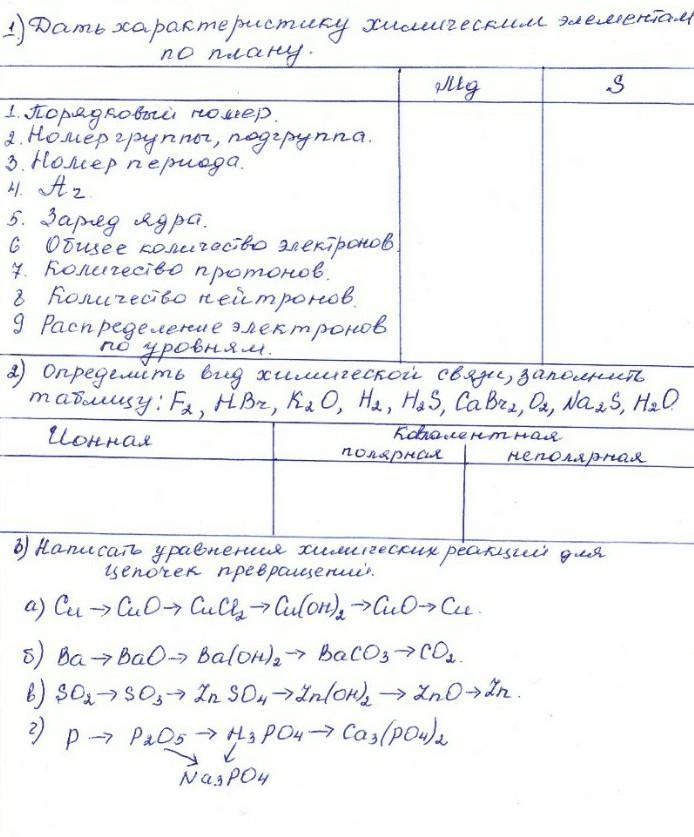 1) Дать характеристику химическим элементам
по плану.
Mg S
1. Порядковый номер.
2. Номер группы, подгруппа.
3. Номер периода.
4. Ar
5. Заряд ядра.
6 Общее количество электронов.
7. Количество протонов.
8 Количество нейтронов.
9 Распределение электронов
по уровням.
2) Определить вид химической связи, заполнить
таблицу: F₂, HBr, K₂O, H₂, H₂S, CaBr₂, O₂, Na₂S, H₂O
Ионная Ковалентная
полярная неполярная
3) Написать уравнения химических реакций для
цепочек превращений.
а) Cu → CuO → CuCl₂ → Cu(OH)₂ → CuO → Cu.
б) Ba → BaO → Ba(OH)₂ → BaCO₃ → CO₂.
в) SO₂ → SO₃ → ZnSO₄ → Zn(OH)₂ → ZnO → Zn.
г) P → P₂O₅ → H₃PO₄ → Ca₃(PO₄)₂
Na₃PO₄